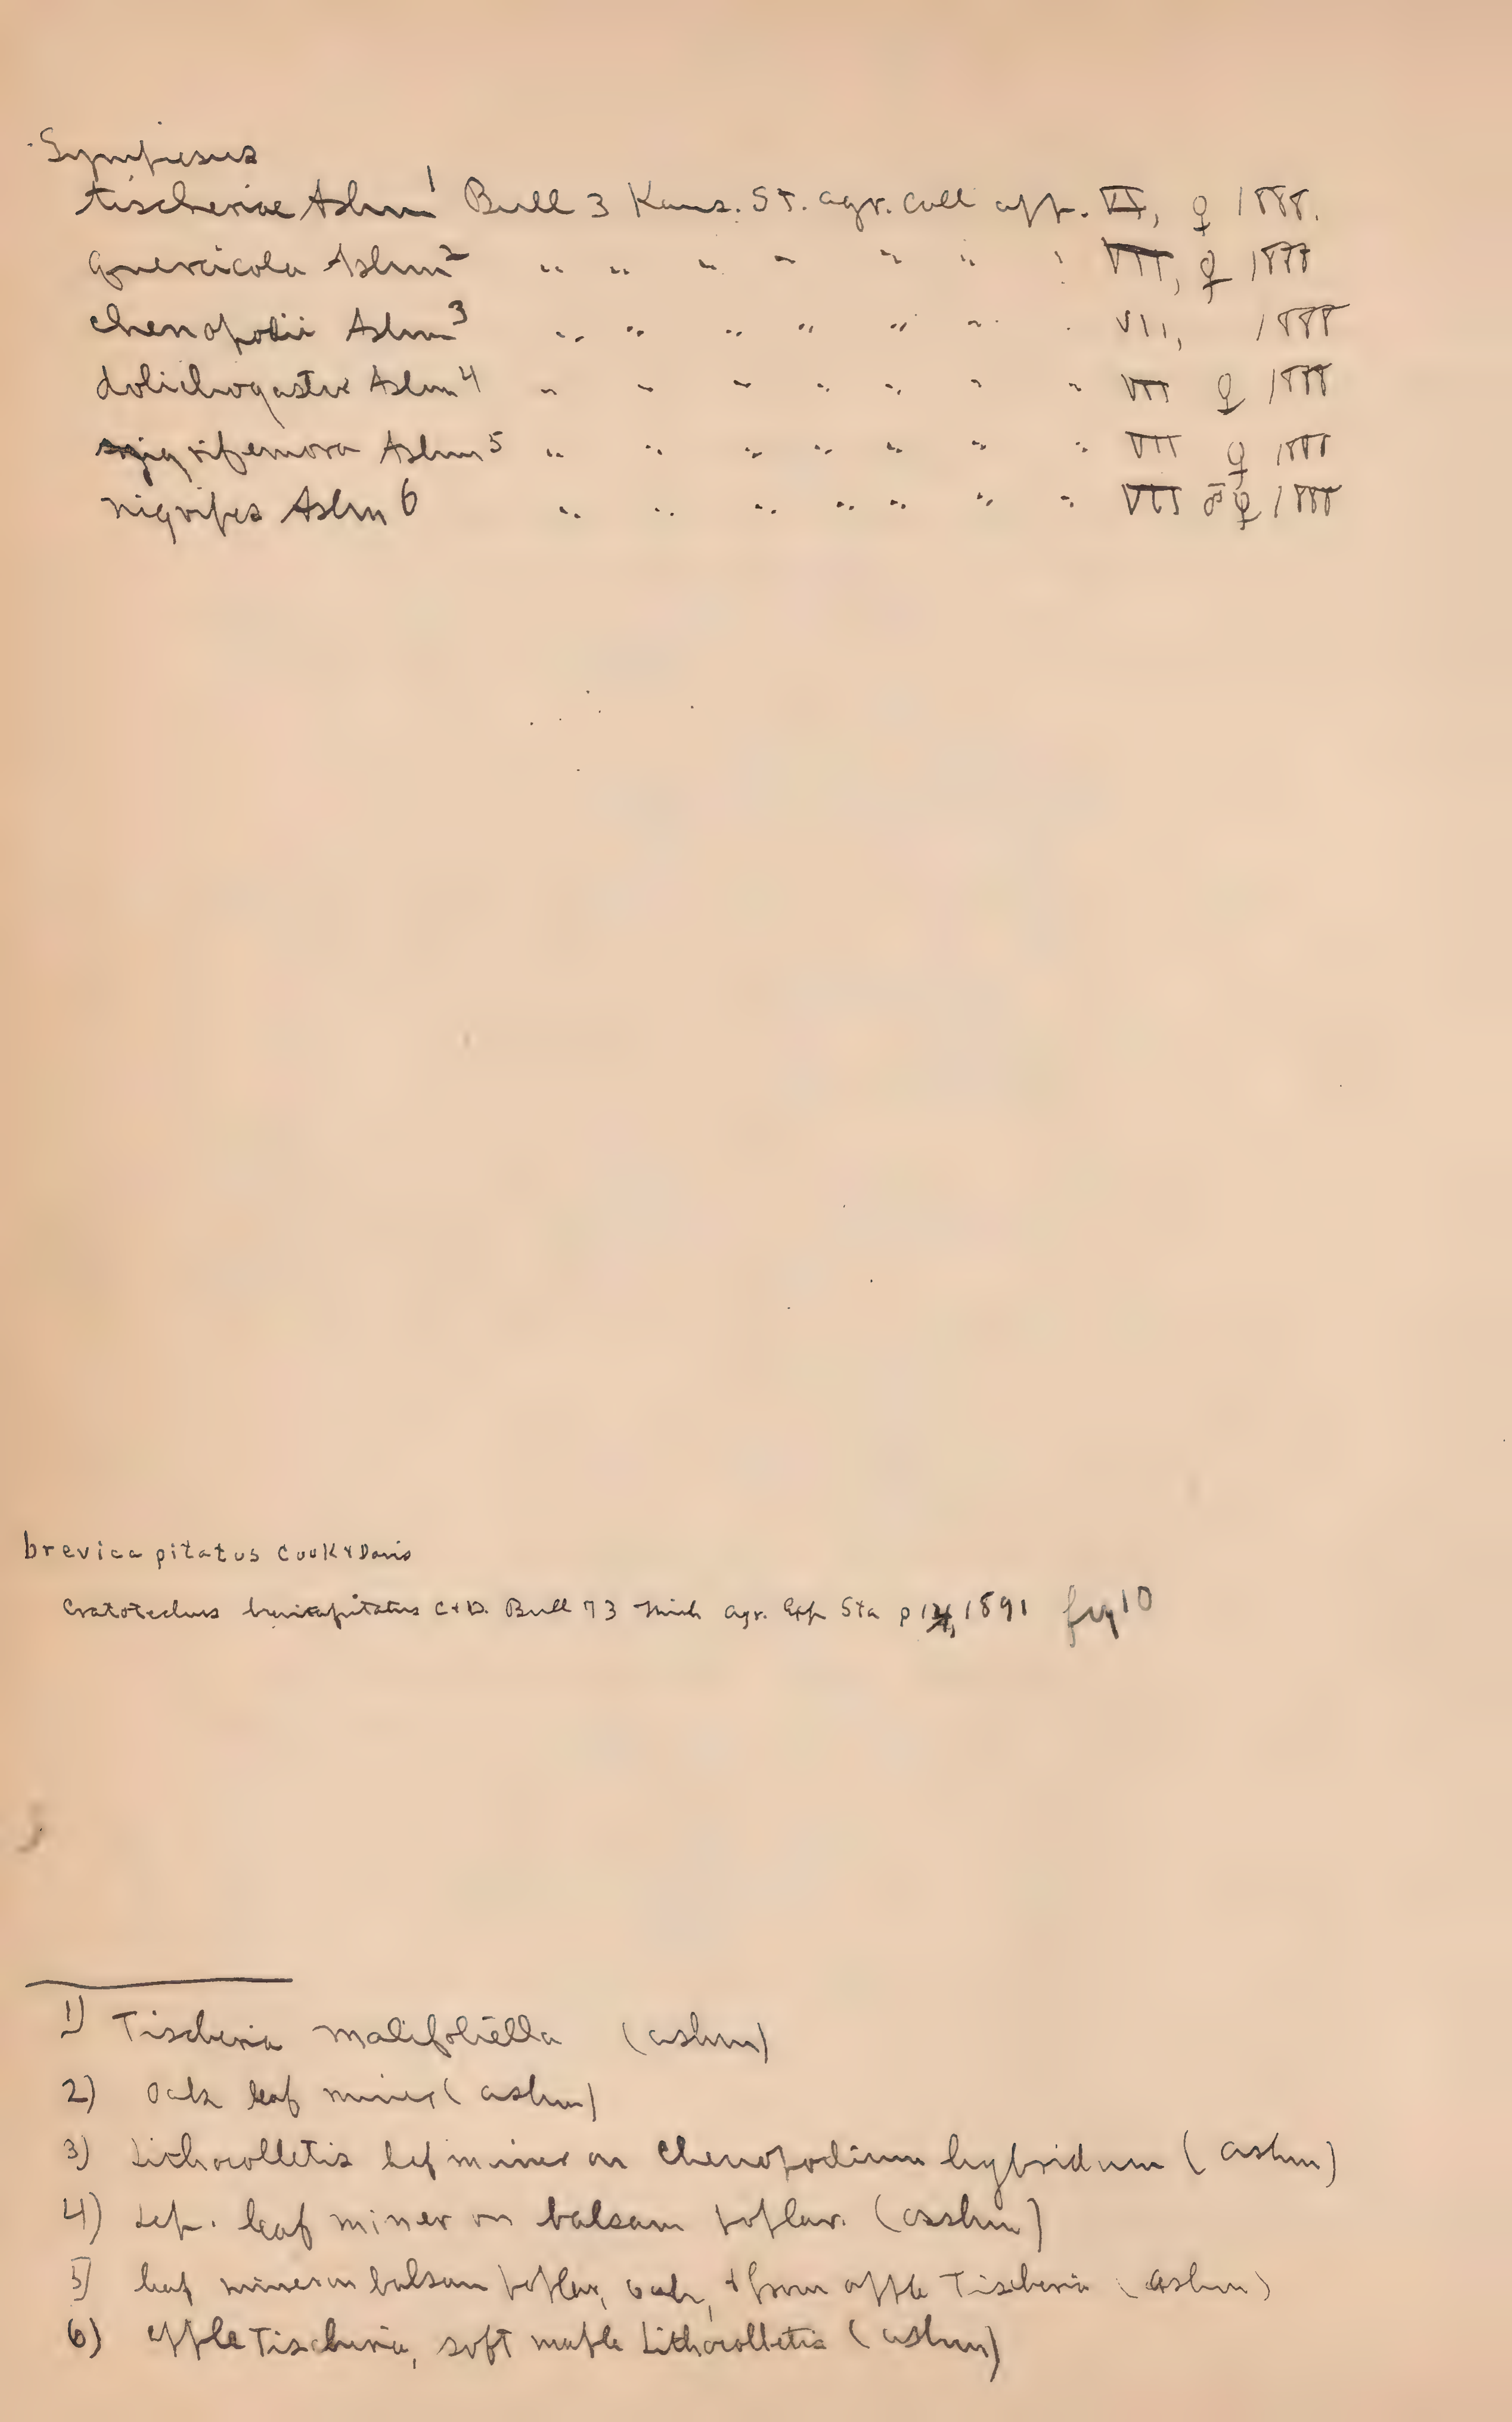 Sympiesus
tischeriae Ashm 1 Bull 3 Kans. St. agr. Coll app. VI, ♀ 1888.
quercicola Ashm 2 " " " " " " " VII, ♀ 1888
chenopodii Ashm 3 " " " " " " " VII, 1888
dolichogaster Ashm 4 " " " " " " " VII ♀ 1888
nigrifemora Ashm 5 " " " " " " " VII ♀ 1888
nigripes Ashm 6 " " " " " " " VII ♂♀ 1888
brevicapitatus Cook & Davis
Cratotechus brevicapitatus C & D. Bull 73 Mich Agr. Exp Sta p 1891 fig 10
1) Tischeria malifoliella (ashm)
2) Oak leaf miner (ashm)
3) Lithocolletis lef miner on Chenopodium hybridum (ashm)
4) Lep. leaf miner on balsam poplar. (ashm)
5) leaf miner on balsam poplar, oak, & from apple Tischeria (ashm)
6) apple Tischeria, soft maple Lithocolletis (ashm)